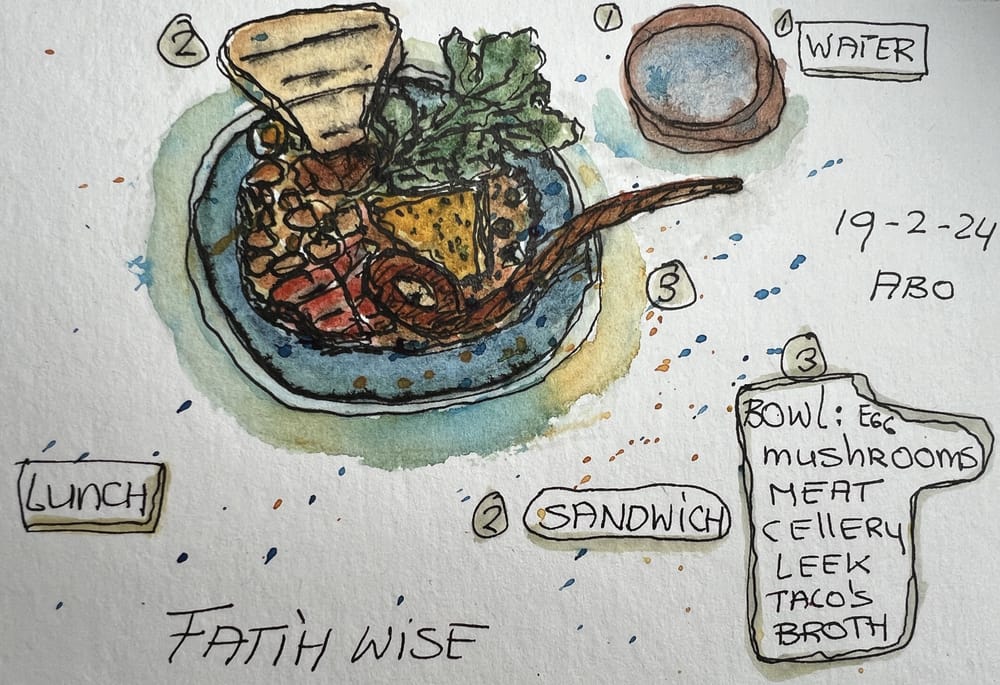 2
1
1
WATER
19-2-24
ABO
3
3
BOWL: EGG
MUSHROOMS
MEAT
CELLERY
LEEK
TACO'S
BROTH
LUNCH
2 SANDWICH
FATIH WISE